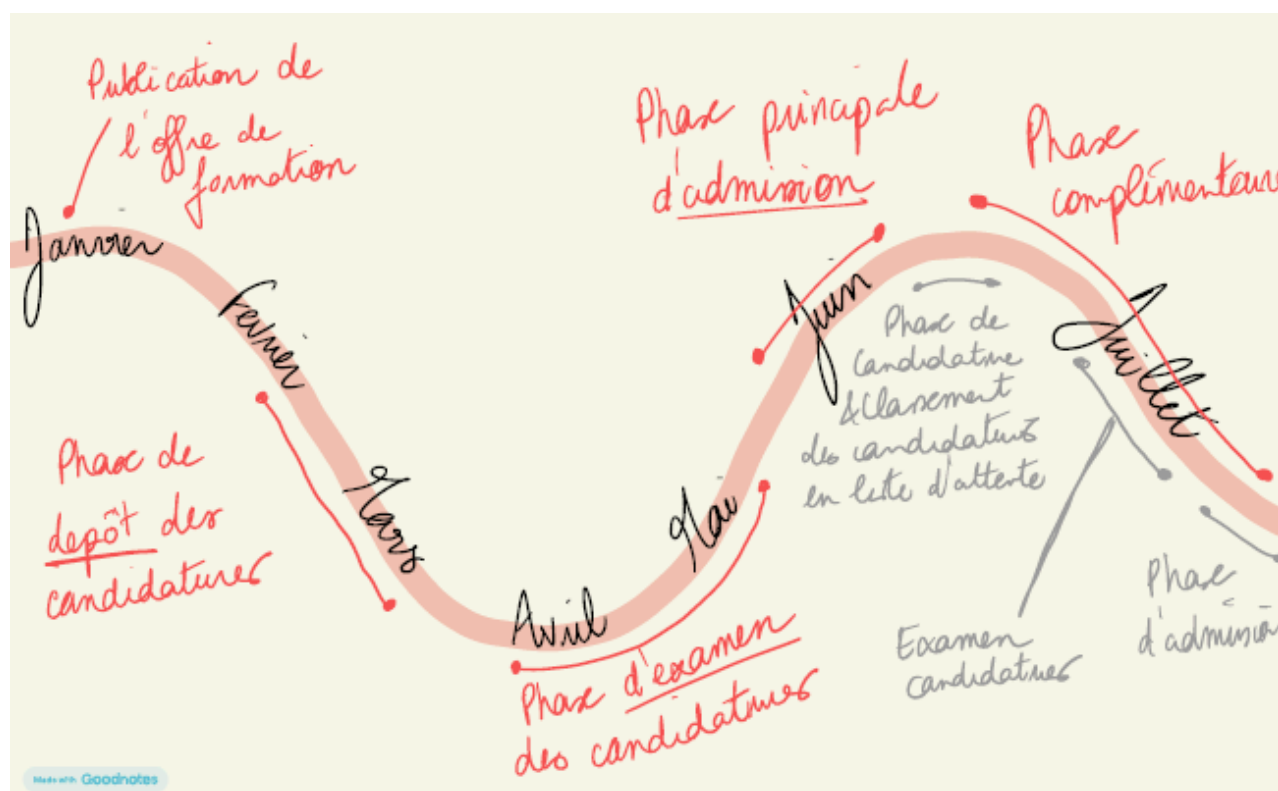 Publication de
l'offre de
formation
Janvier
Fevrier
Phase de
depôt des
candidatures
Mars
Avril
Phase d'examen
des candidatures
Mai
Phase principale
d'admission
Juin
Phase
complémentaire
Phase de
Candidature
& Classement
des candidatures
en liste d'attente
Juillet
Examen
candidatures
Phase
d'admission
Made with Goodnotes